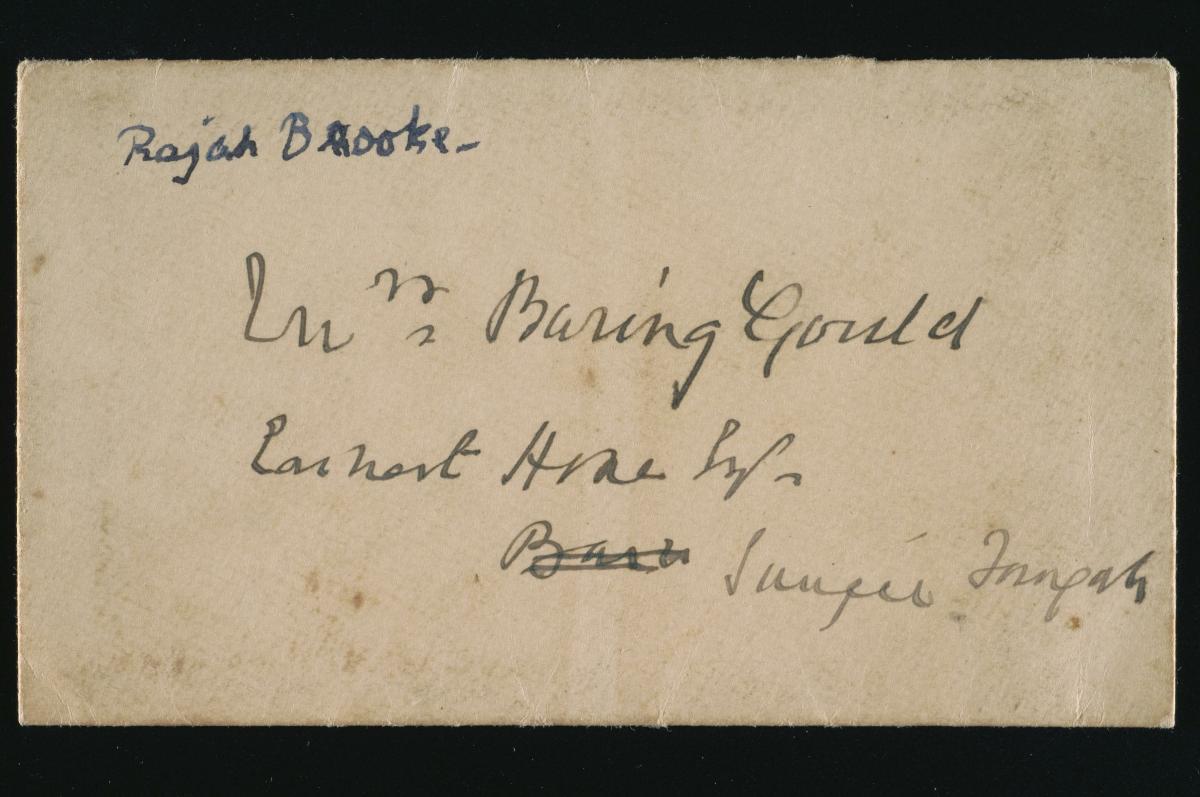 Rajah Brooke-
Mrs Baring Gould
Earnest Hose Esq.
Baru Sungei Tangah